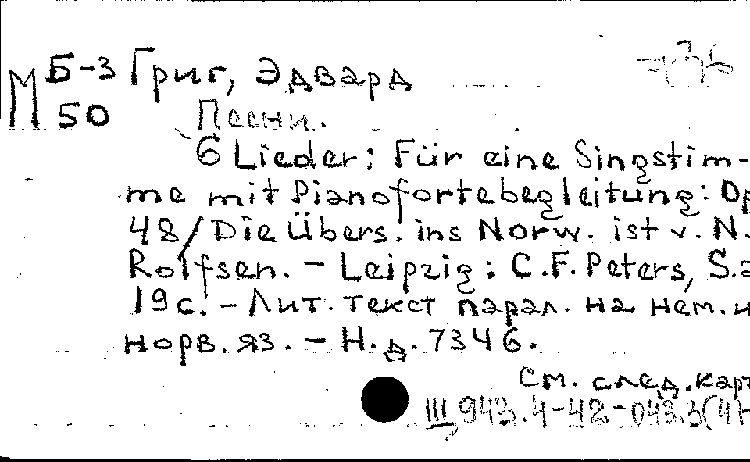 М Б-3 Григ, Эдвард
50 Песни.
6 Lieder: Für eine Singstim-
me mit Pianofortebegleitung: Op
48/Die Übers. ins Norw. ist v. N.
Rolfsen. – Leipzig: C.F. Peters, S.a
19 с. – Лит. текст парал. на нем. и
норв. яз. – Н.д. 7346.
См. след. карт
Щ943.4-48-043.3(4Н